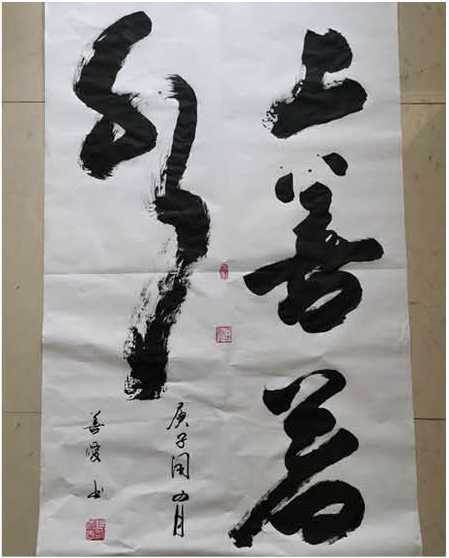 上善若
水
庚子闰四月
善
书